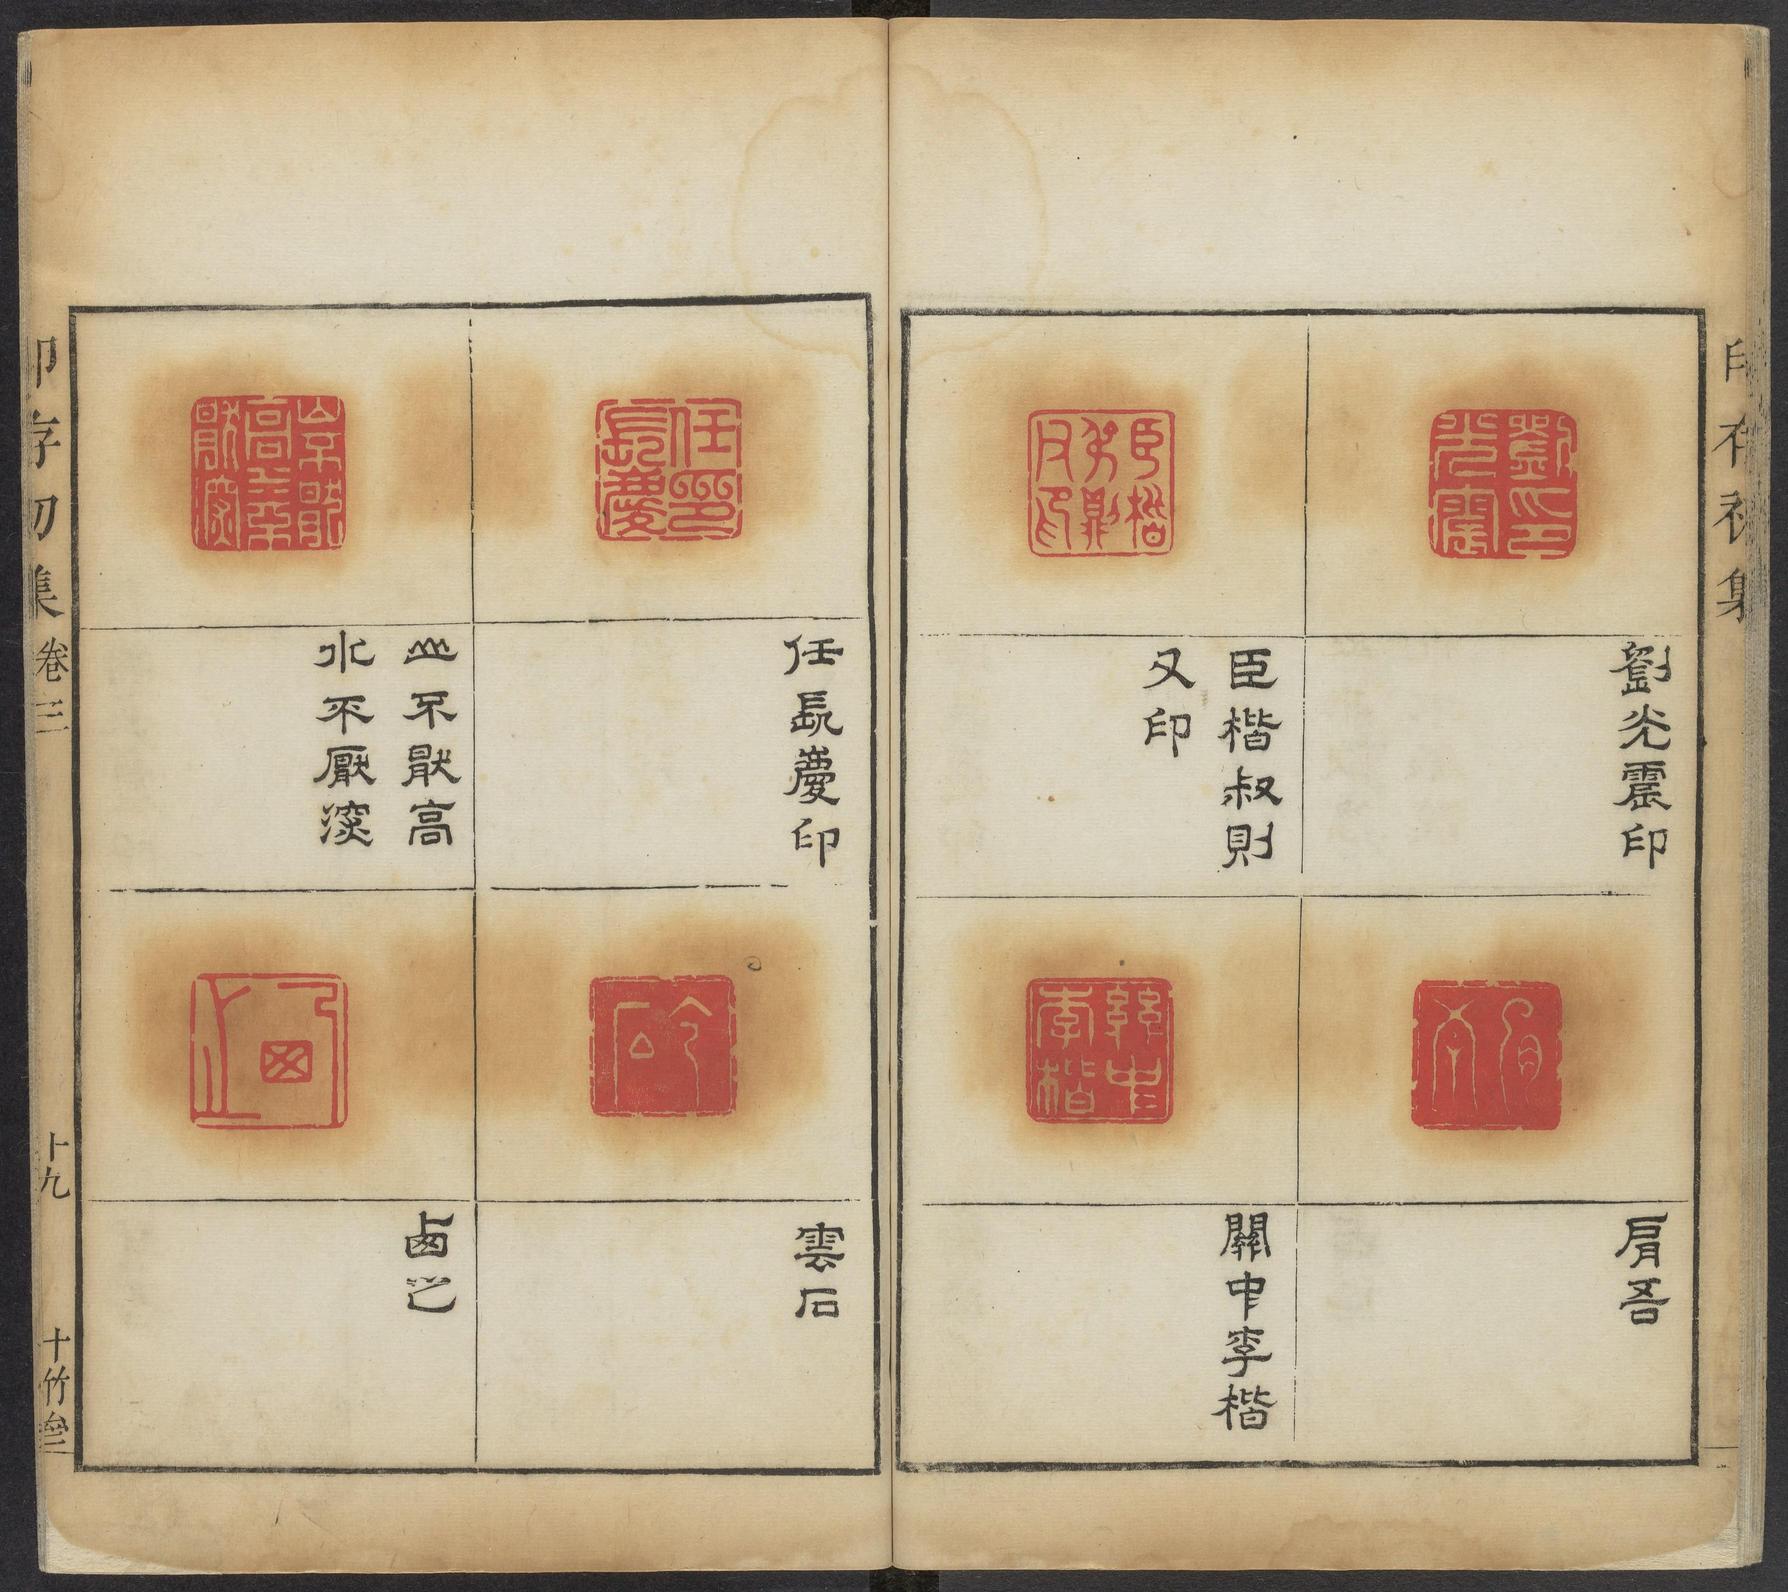 印存初集
劉光震印
臣楷叔則
又印
肩吾
關中李楷
任長慶印
山不猒高
水不厭深
雲石
印存初集
卷三
十九
十竹齋